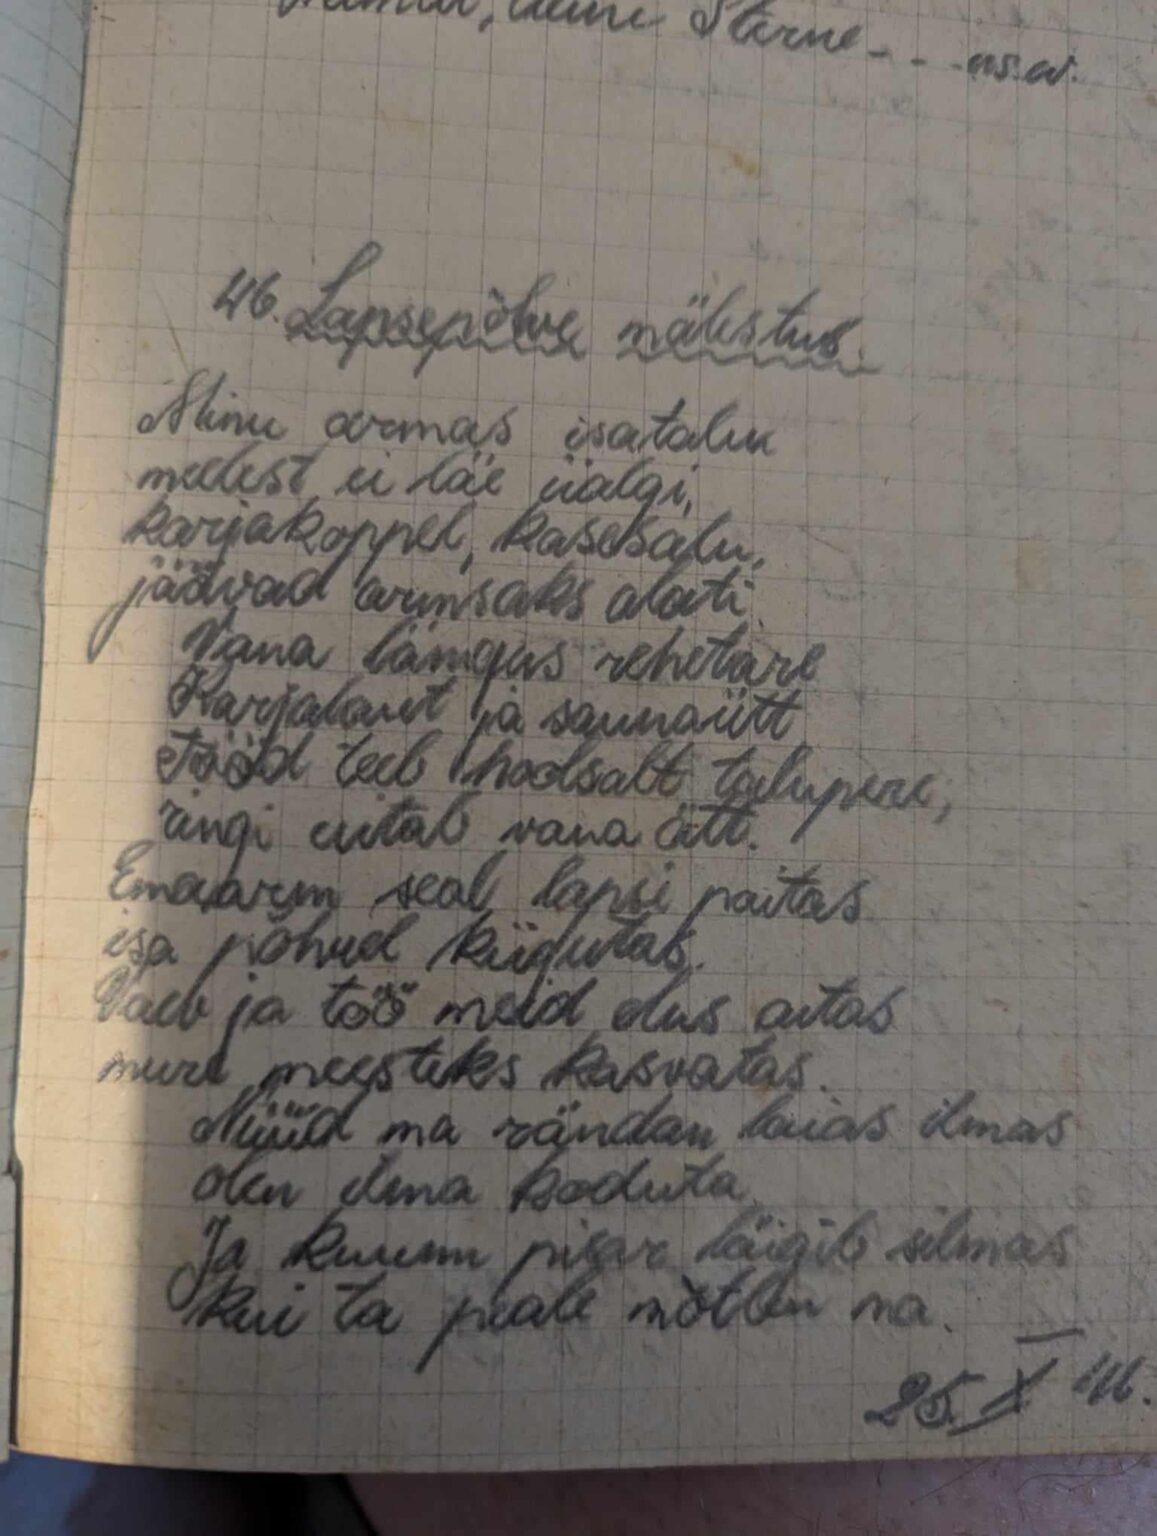 Heimat, deine Sterne - - - us.w.
46. Lapsepõlve mälestus.
Minu armas isatalu
meelest ei läe iialgi,
karjakoppel, kasesalu,
jäävad armsaks alati.
Vana längus rehetare
Karjalaut ja saunaütt
Tööd teeb hoolsalt talupere,
ringi uitab vana ätt.
Emaarm seal lapsi paitas
isa põhud kiigutas.
Vaev ja töö meid elus aitas
mure meesteks kasvatas.
Nüüd ma rändan laias ilmas
olen ilma koduta
Ja kuum pisar läigib silmas
kui ta peale mõtlen ma.
25. X 46.